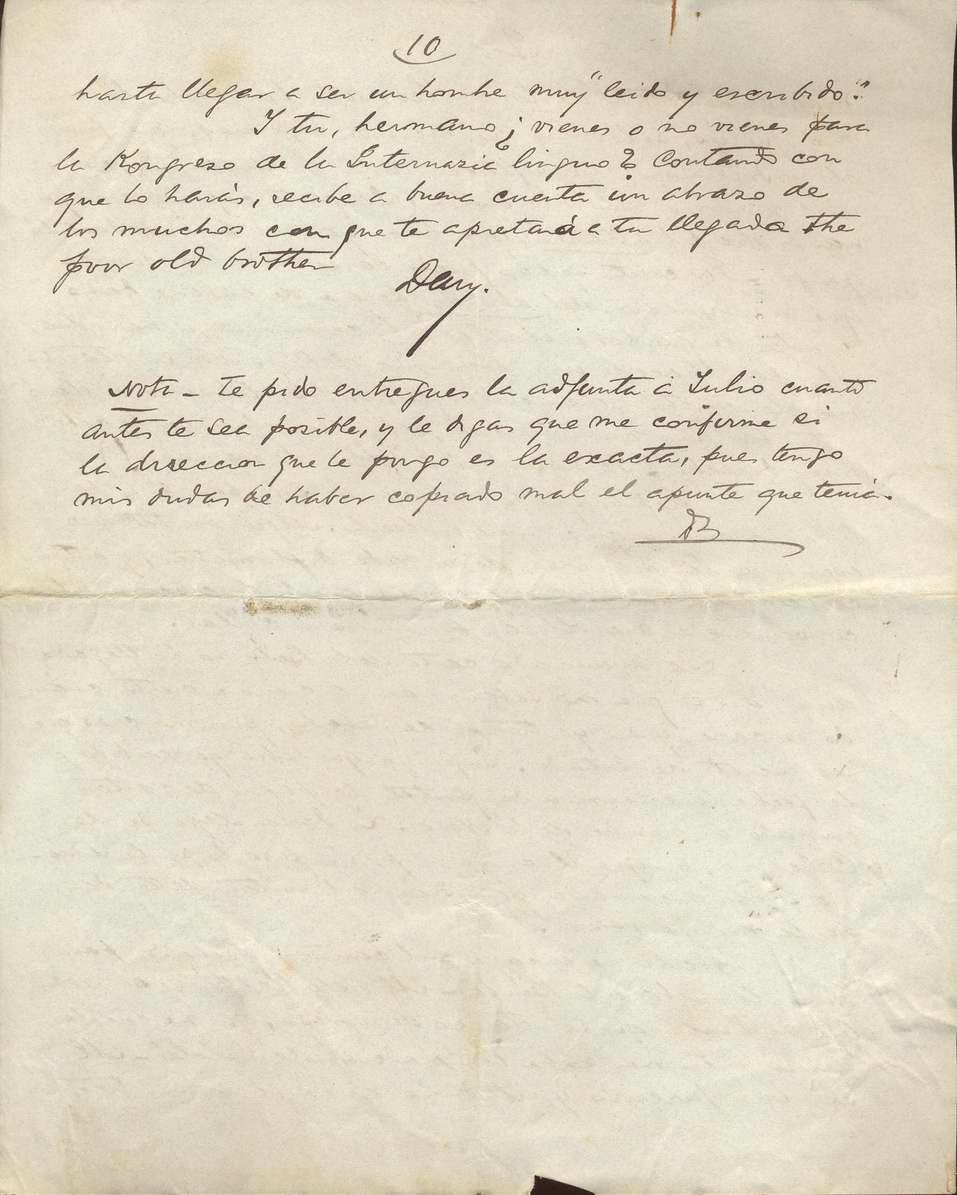 10
hasta llegar a ser un hombre muy "leido y escribido".
I tu, hermano ¿ vienes o no vienes para
la Kongreso de la Internazia linguo? Contando con
que lo harás, recibe a buena cuenta un abrazo de
los muchos con que te apretará a tu llegada the
poor old brother
Dary.
Nota - te pido entregues la adjunta á Julio cuanto
antes te sea posible, y le digas que me confirme si
la direccion que le pongo es la exacta, pues tengo
mis dudas de haber copiado mal el apunte que tenia.